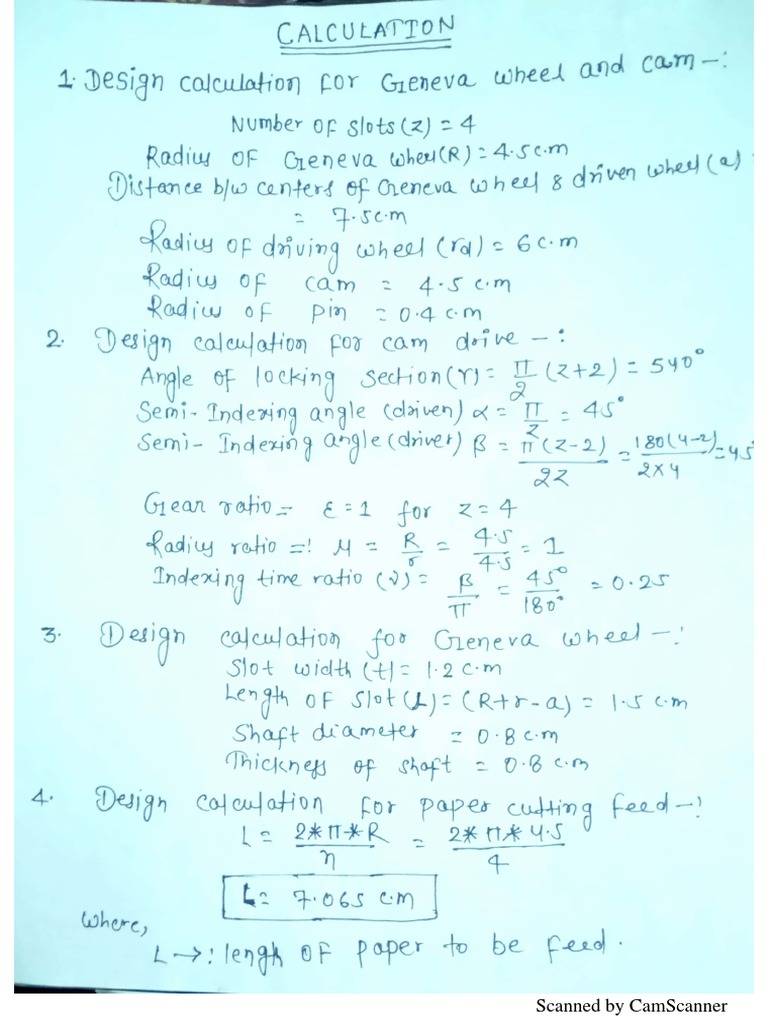 CALCULATION
1. Design calculation for Geneva wheel and cam -:
Number of slots (z) = 4
Radius of Geneva wheel (R) = 4.5 c.m
Distance b/w centers of Geneva wheel & driven wheel (a)
= 7.5 c.m
Radius of driving wheel (rd) = 6 c.m
Radius of cam = 4.5 c.m
Radius of pin = 0.4 c.m
2. Design calculation for cam drive -:
Angle of locking section (γ) = π/2 (z+2) = 540°
Semi-Indexing angle (driven) α = π/z = 45°
Semi-Indexing angle (driver) β = π(z-2)/2z = 180(4-2)/2×4 = 45°
Gear ratio = ε = 1 for z = 4
Radius ratio =: μ = R/r = 4.5/4.5 = 1
Indexing time ratio (ν) = β/π = 45°/180° = 0.25
3. Design calculation for Geneva wheel -:
Slot width (t) = 1.2 c.m
Length of slot (L) = (R+r-a) = 1.5 c.m
Shaft diameter = 0.8 c.m
Thickness of shaft = 0.8 c.m
4. Design calculation for paper cutting feed -:
L = 2*π*R/n = 2*π*4.5/4
L = 7.065 c.m
where,
L →: lengh of paper to be feed.
Scanned by CamScanner